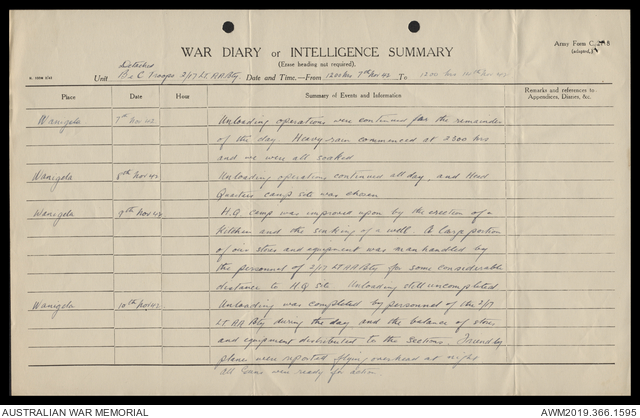 Army Form C.2118
(adapted.)
WAR DIARY OR INTELLIGENCE SUMMARY
(Erase heading not required).
Detached
Unit B & C Troops 2/17 Lt. AA Bty Date and Time.—From 1200 hrs 7th Nov 42 To 1200 hrs 10th Nov 42
Place Date Hour Summary of Events and Information Remarks and references to Appendices, Diaries, &c.
Wanigela 7th Nov 42 Unloading operations were continued for the remainder
of the day. Heavy rain commenced at 2300 hrs
and we were all soaked
Wanigela 8th Nov 42 Unloading operations continued all day, and Head
Quarters camp site was chosen
Wanigela 9th Nov 42 H.Q. camp was improved upon by the erection of a
Kitchen and the sinking of a well. A large portion
of our stores and equipment was manhandled by
the personnel of 2/17 Lt AA Bty for some considerable
distance to H.Q site Unloading still uncompleted
Wanigela 10th Nov 42 Unloading was completed by personnel of the 2/17
LT AA Bty during the day and the balance of stores
and equipment distributed to the sections.
planes were reported flying overhead at night
all Guns were ready for action.
AUSTRALIAN WAR MEMORIAL
AWM2019.366.1595